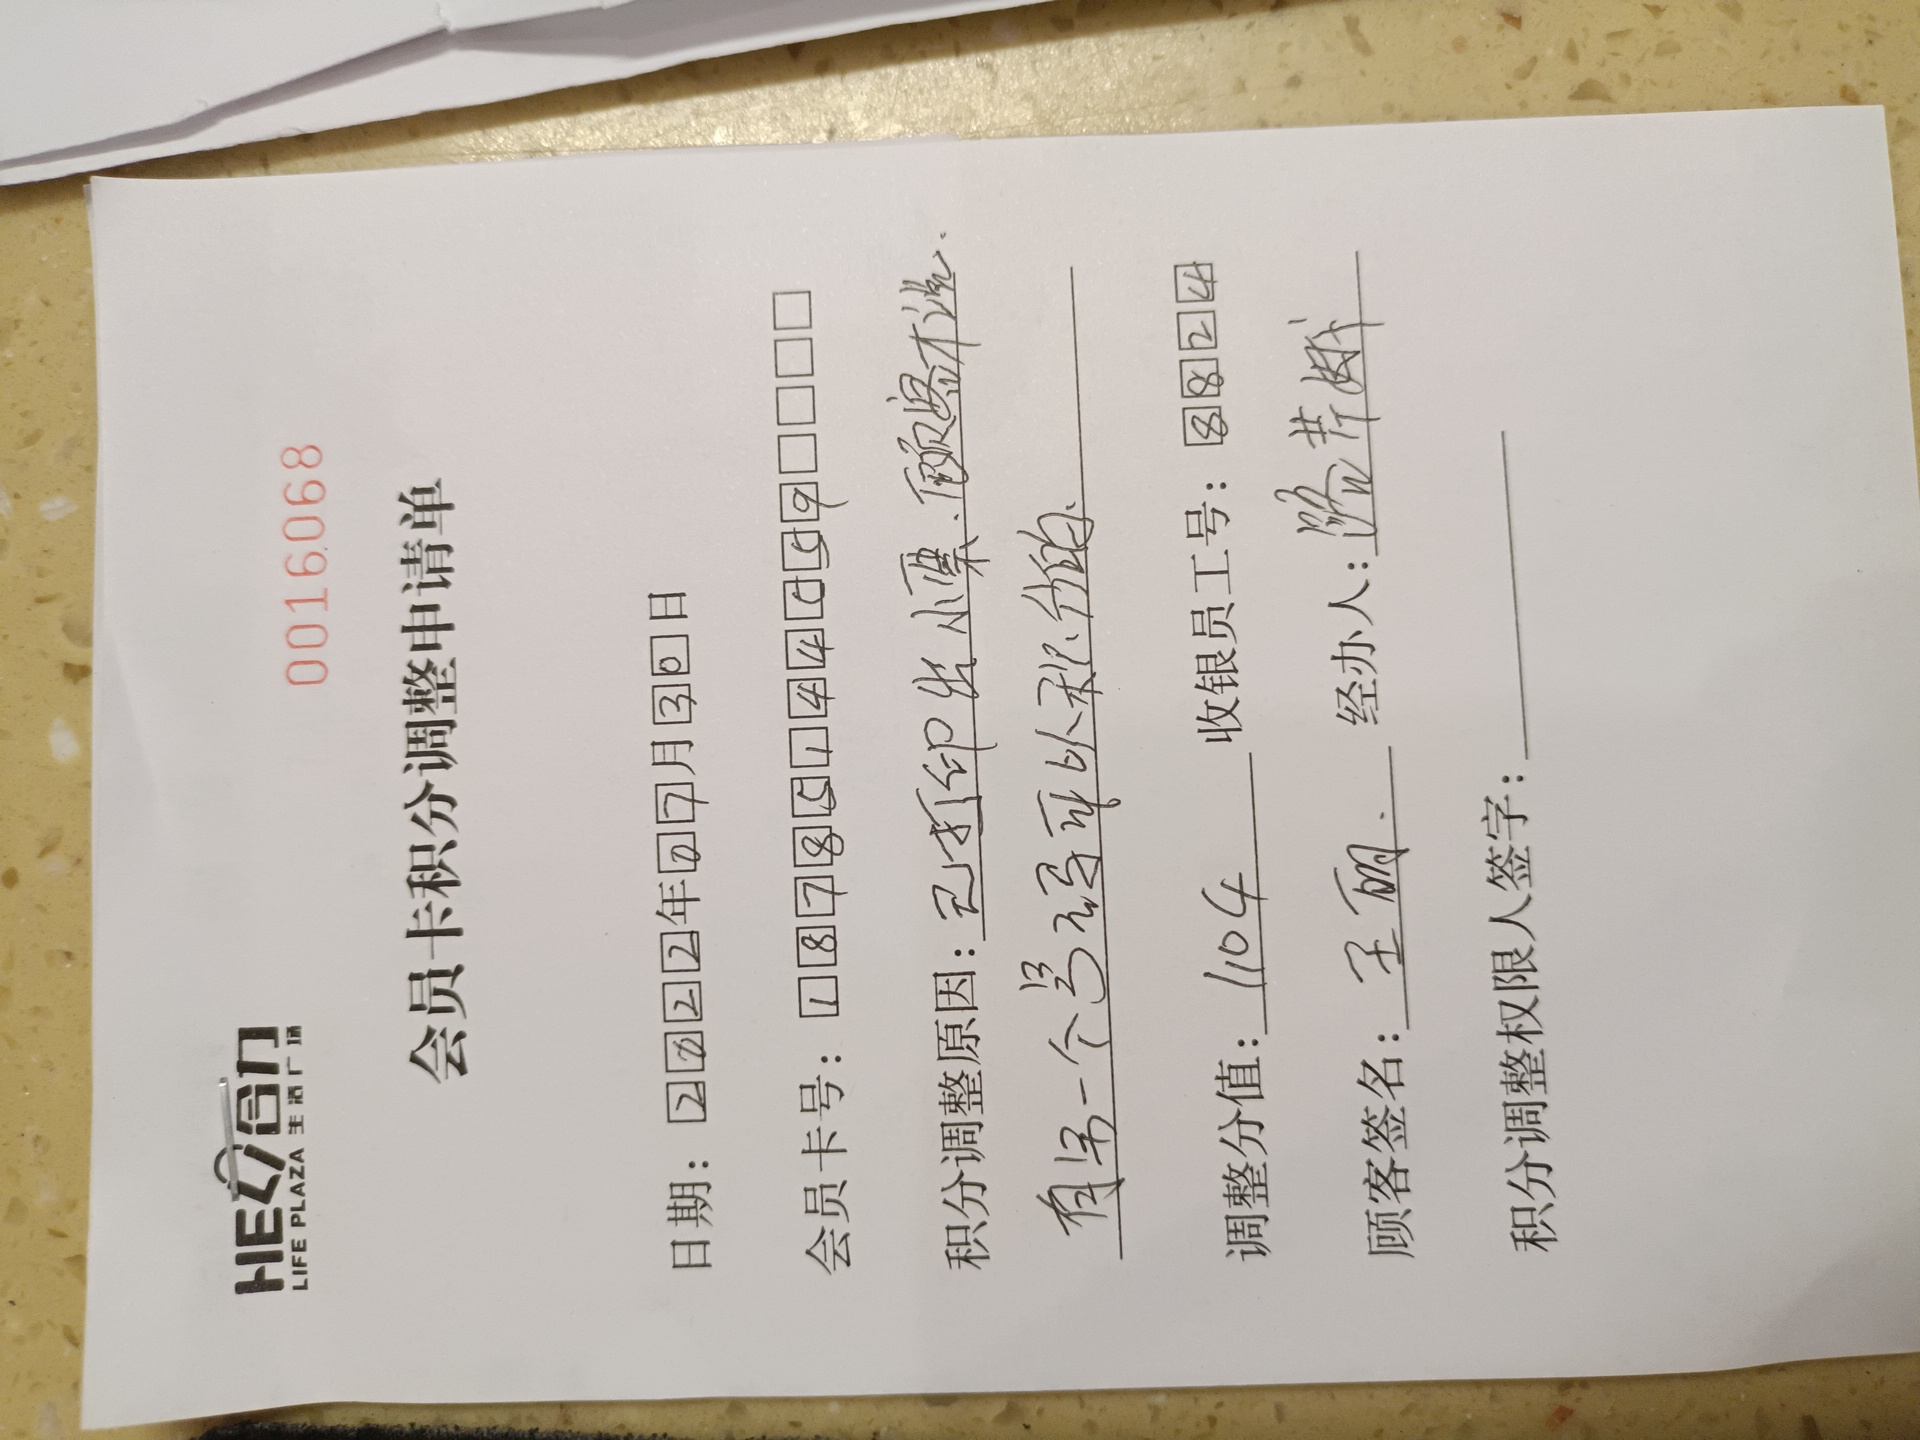 HE LI 合力
LIFE PLAZA 生活广场
0016068
会员卡积分调整申请单
日期: 2022年07月30日
会员卡号: 1878514459
积分调整原因: 已打印出小票.顾客才说.
有另一个号 可以积分的.
调整分值: 1104 收银员工号: 8824
顾客签名: 王丽. 经办人:
积分调整权限人签字: